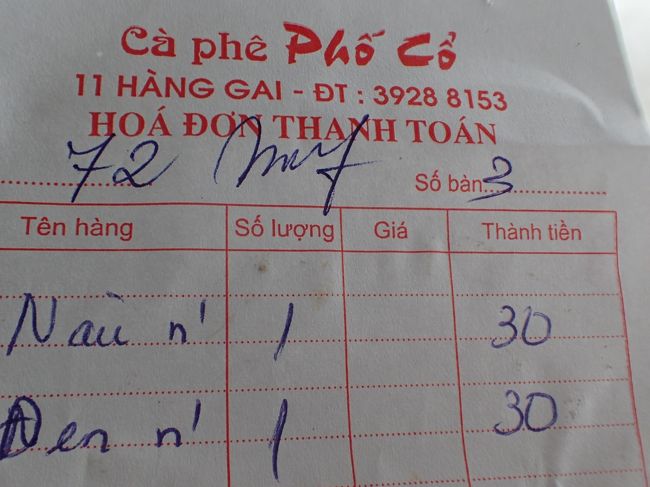 Cà phê Phố Cổ
11 HÀNG GAI - ĐT : 3928 8153
HOÁ ĐƠN THANH TOÁN
72
Số bàn 3
Tên hàng Số lượng Giá Thành tiền
Nâu n' 1 30
Đen n' 1 30